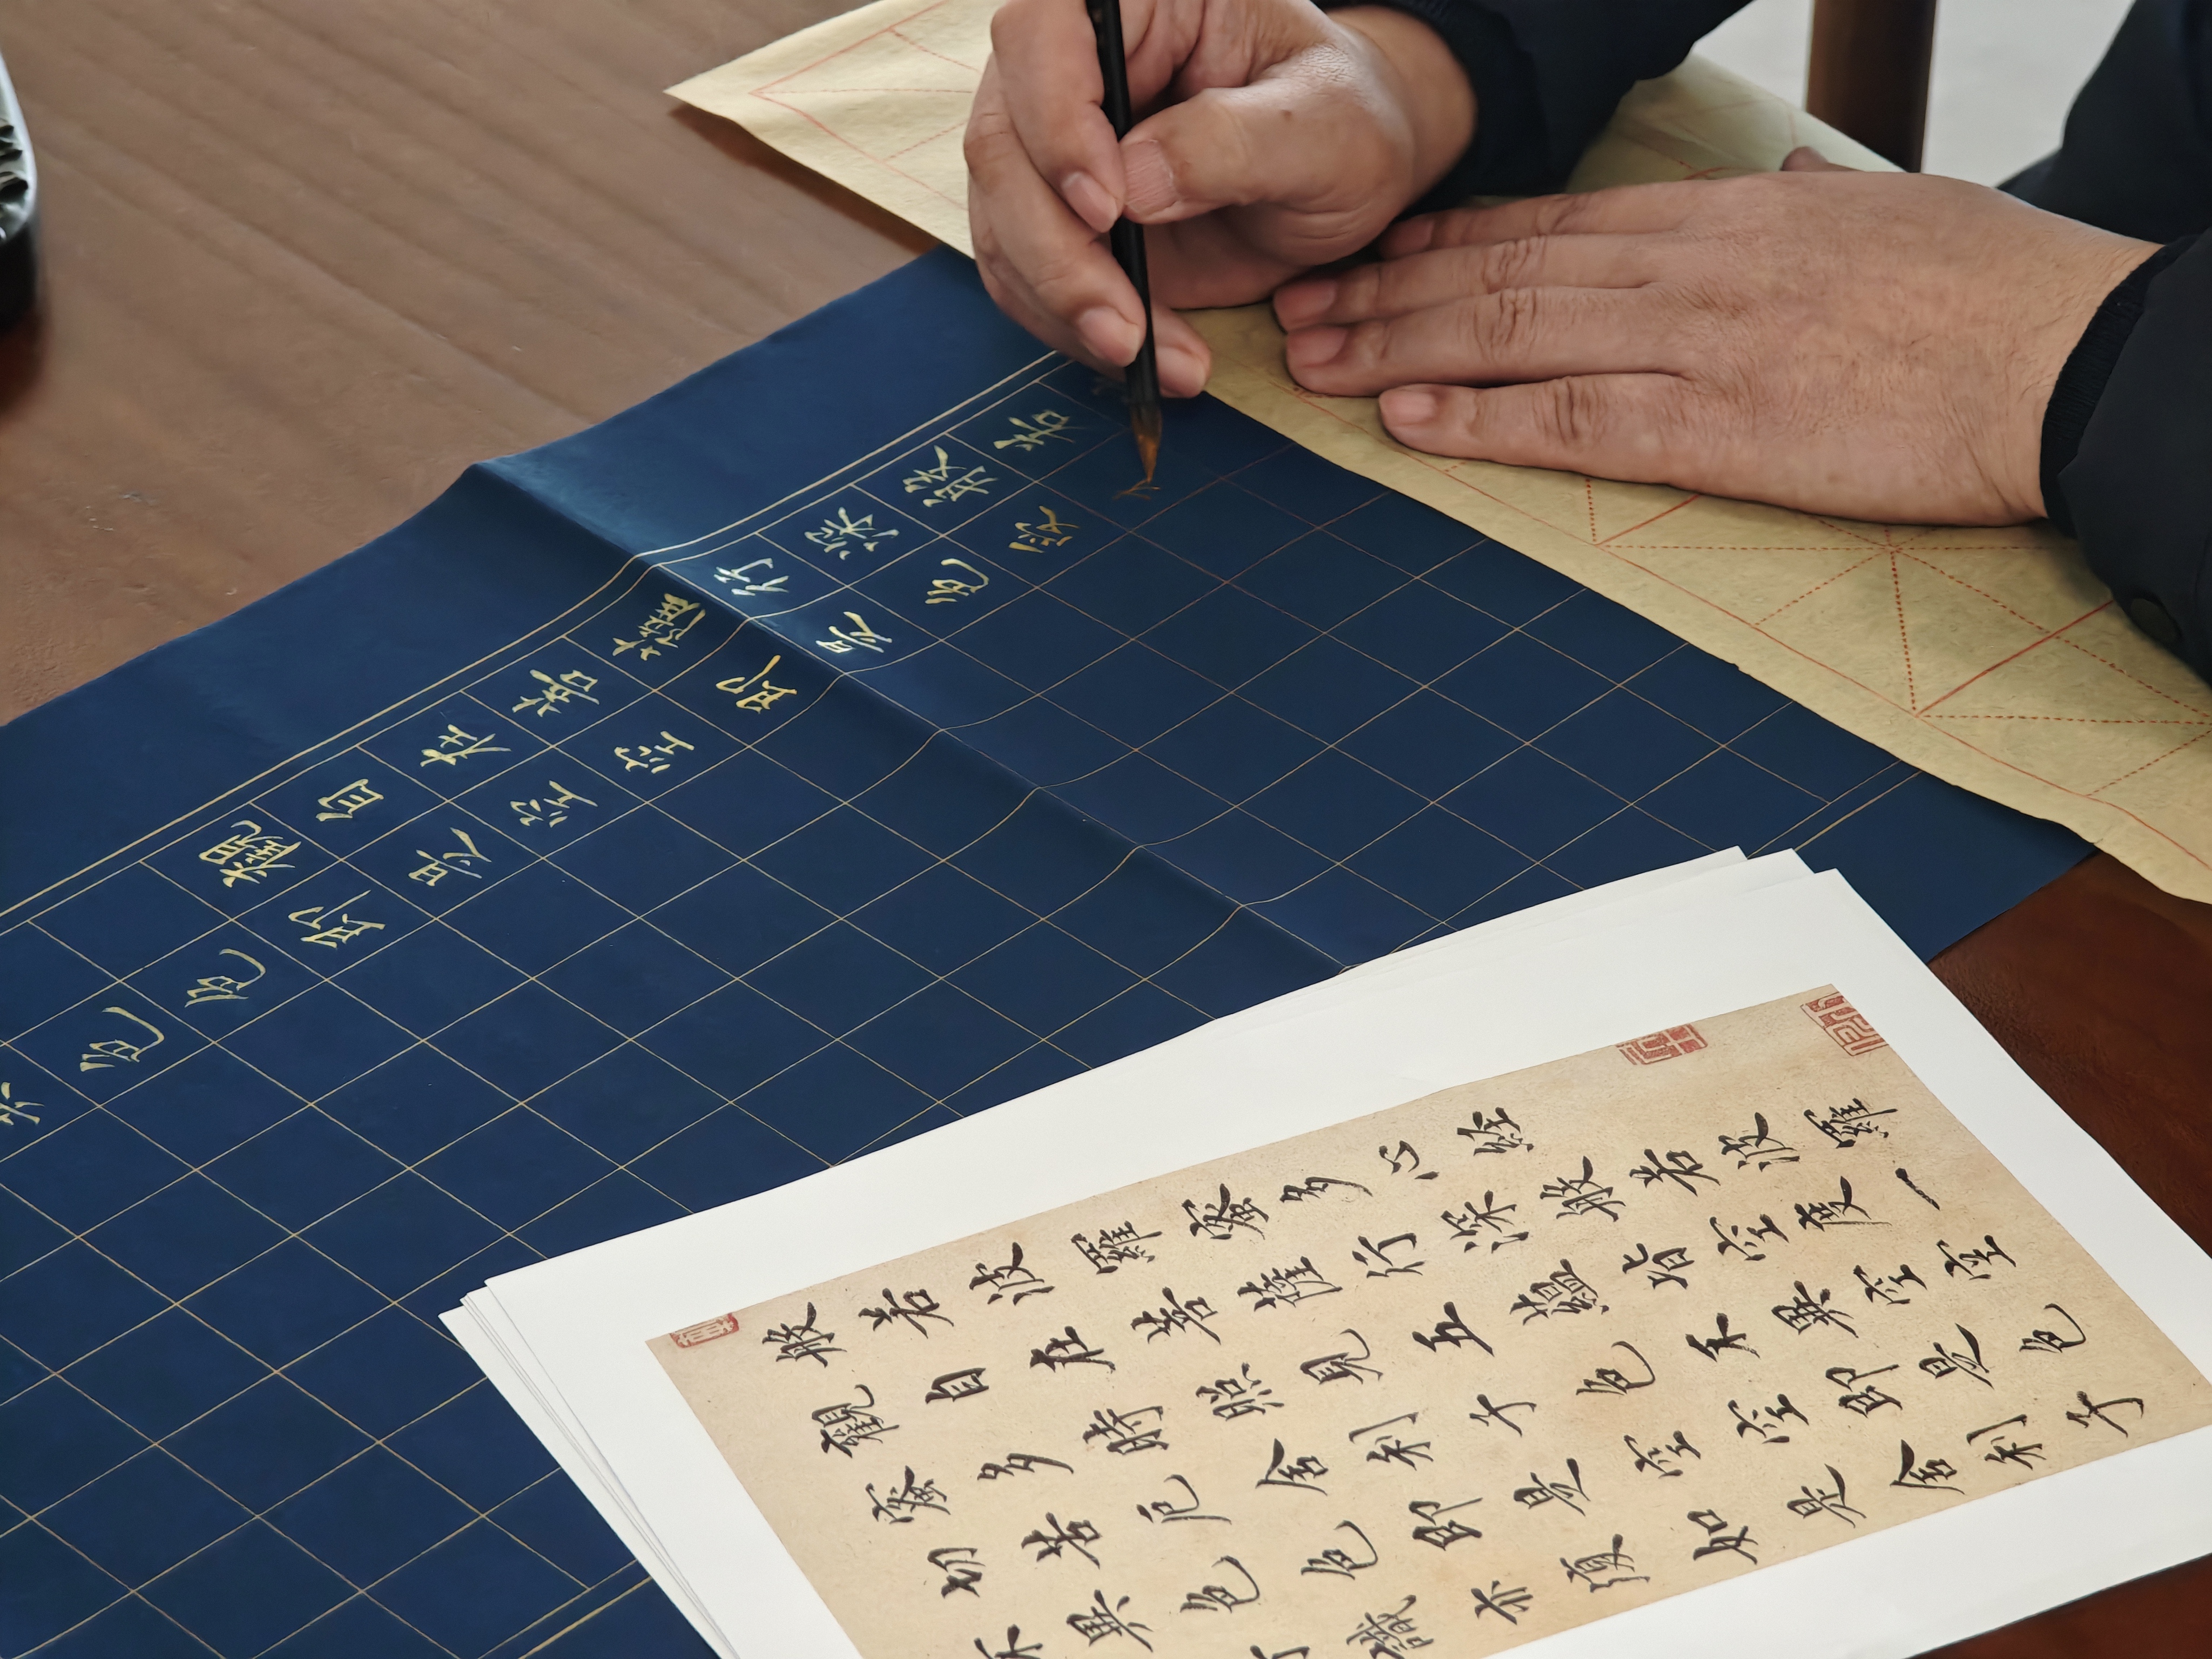 觀自在菩薩行深般若
色色即是空空即是色受
般若波羅蜜多心經
觀自在菩薩行深般若波羅
蜜多時照見五蘊皆空度一
切苦厄舍利子色不異空空
不異色色即是空空即是色
識亦復如是舍利子